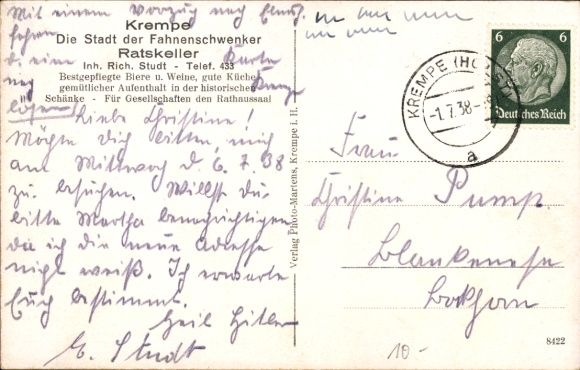 Mit einem Vorzug nach Elmsh.
fahren
d. eine Karte
nag Krempe
lösen
Krempe
Die Stadt der Fahnenschwenker
Ratskeller
Inh. Rich. Studt - Telef. 433
Bestgepflegte Biere u. Weine, gute Küche
gemütlicher Aufenthalt in der historischen
Schänke - Für Gesellschaften den Rathaussaal
Liebe Christine!
Möchte Dich bitten, mich
am Mittwoch d. 6. 7. 38
zu besuchen. Willst du
bitte Martha benachrichtigen
da ich die neue Adresse
nicht weiß. Ich erwarte
Euch bestimmt.
Heil Hitler
E. Studt
Verlag Photo-Martens, Krempe i. H.
KREMPE (HOLST)
-1.7.38
a
6 6
Deutsches Reich
Frau
Christine Pump
Blankenese
Dockhorn
10-
8422